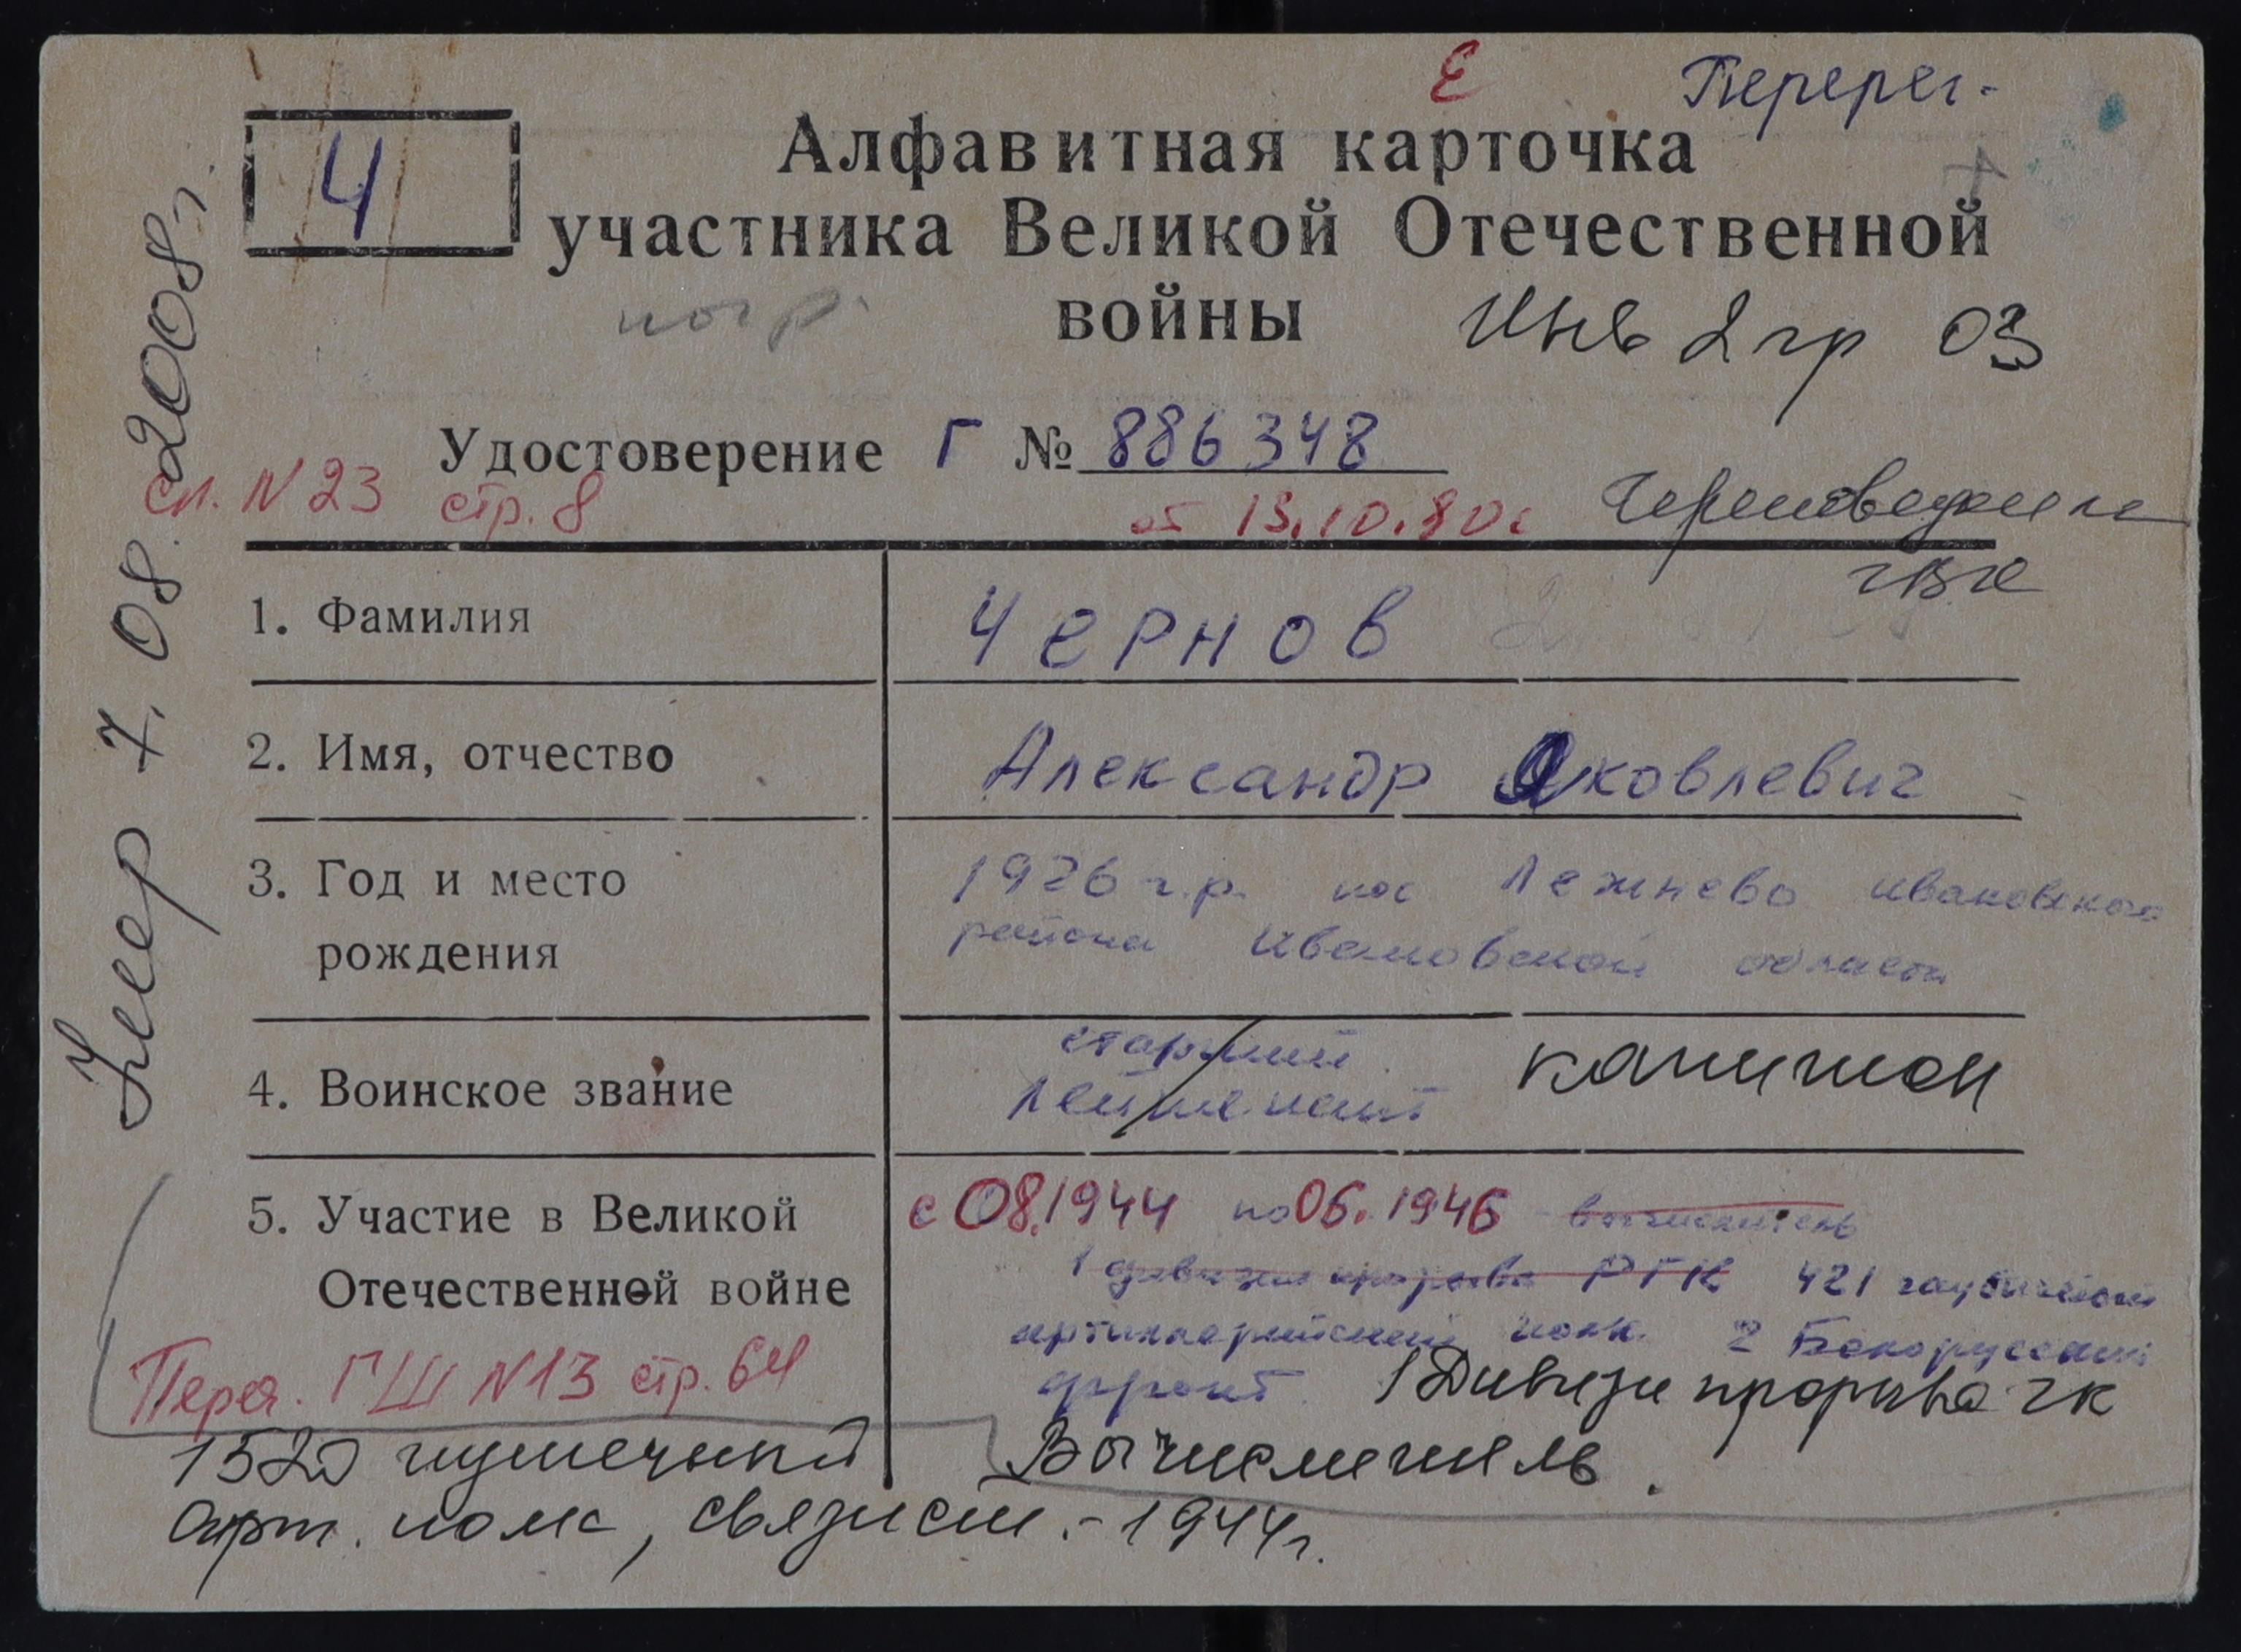 Е Перерег.
Ч
Алфавитная карточка
участника Великой Отечественной
войны
Инв 2 гр ОЗ
Удостоверение Г № 886348
сп. N 23 стр. 8 от 13.10.80г
ГВК
1. Фамилия Чернов
2. Имя, отчество Александр Яковлевич
3. Год и место 1926 г.р. пос Лежнево Ивановского
рождения района Ивановской области
4. Воинское звание старший
лейтенант капитан
5. Участие в Великой с 08.1944 по 06.1946 вычислитель
Отечественной войне 1 дивизия прорыва РГК 421 гаубичный
артиллерийский полк 2 Белорусский
Переч. ГШ N13 стр. 64 фронт 1 Дивизи прорыва ГК
1520 пушечный Вычислитель.
Арт. полк, связист.-1944г.
Умер 7.08.2008г.